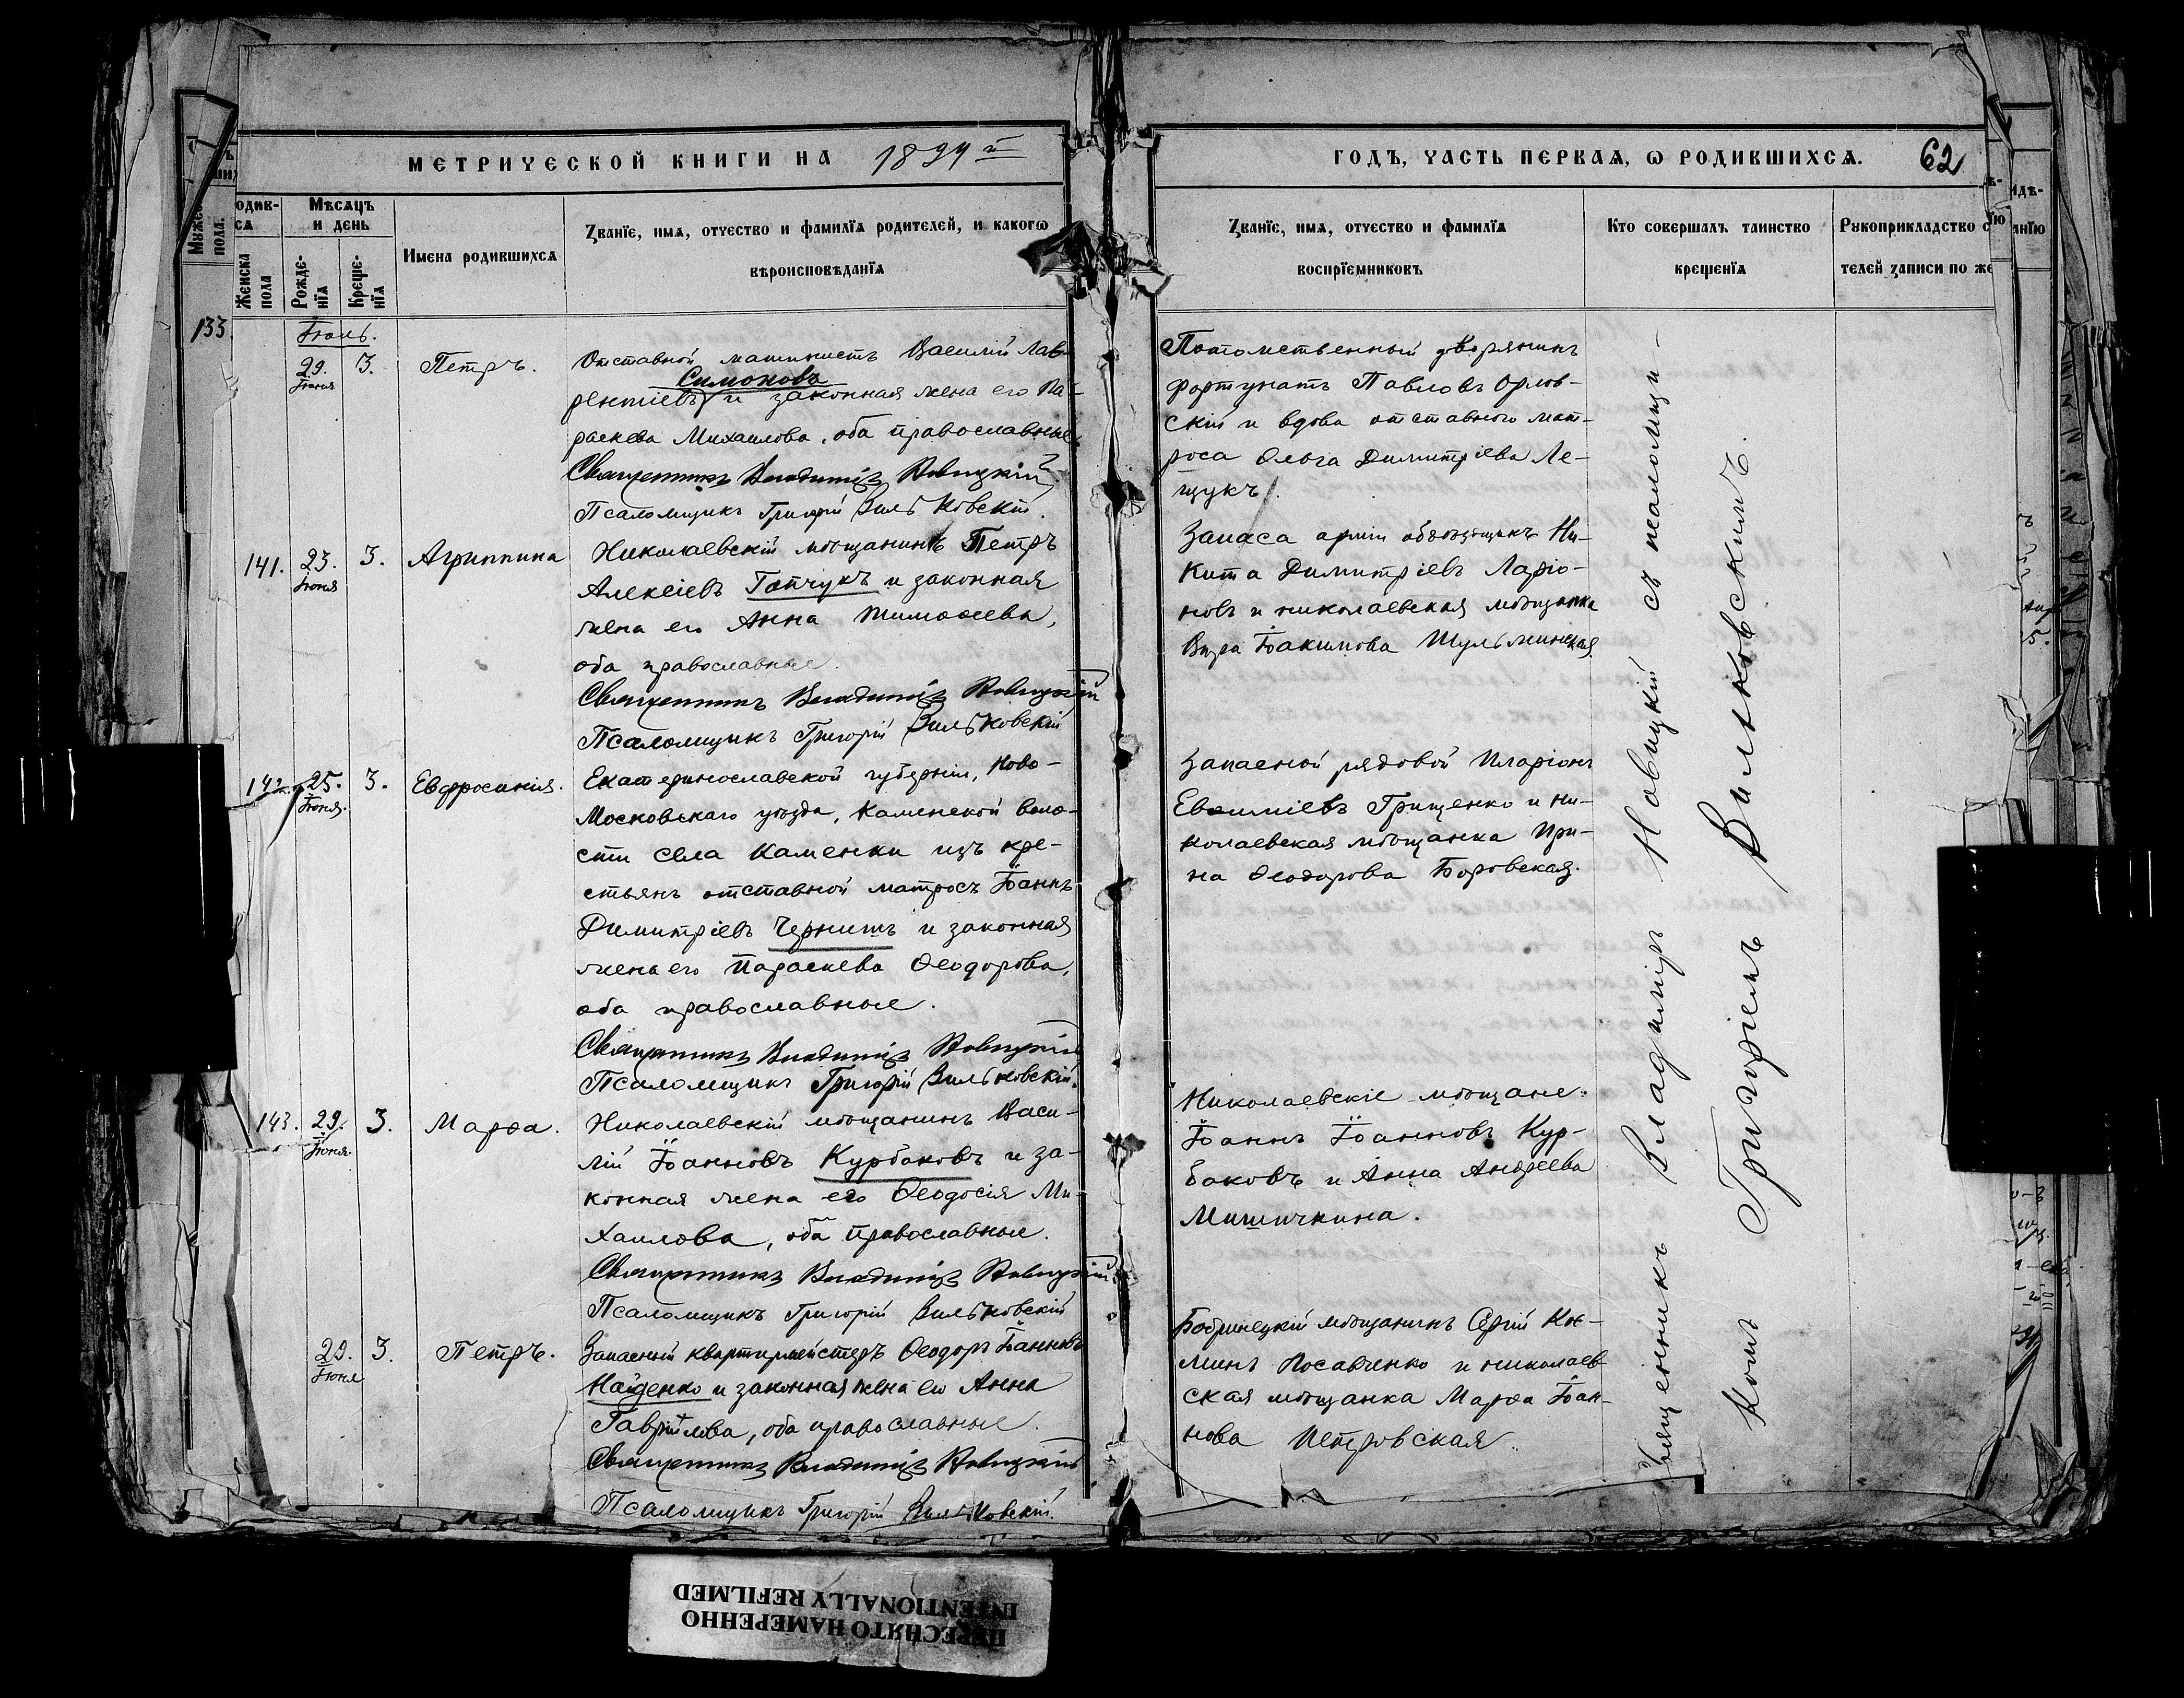 МЕТРИЧЕСКОЙ КНИГИ НА 1894 й
ГОДЪ, ЧАСТЬ ПЕРВАЯ, Ѡ РОДИВШИХСѦ. 62
Мѣсѧцъ и день
Женска пола
Рожде-нїѧ
Креще-нїѧ
Имена родившихсѧ
Званїе, имѧ, отчество и фамилїѧ родителей, и какогѡ
вѣроисповѣданїѧ
Званїе, имѧ, отчество и фамилїѧ
воспрїемниковъ
Кто совершалъ таинство
крещенїѧ
Рукоприкладство
телей записи по же
133.
Іюль.
29. Іюня 3. Петръ.
Отставной машинистъ Василій Лав-
Симоновъ
рентіевъ и законная жена его Па-
раскева Михаилова, оба православные
Священникъ Владиміръ Навицкій
Псаломщикъ Григорій Вильковскій.
Потомственный дворянинъ
Фортунатъ Павловъ Орлов-
скій и вдова отставного мат-
роса Ольга Димитріева Ле-
щукъ.
141. 23. Іюня 3. Агриппина
Николаевскій мѣщанинъ Петръ
Алексіевъ Гапчукъ и законная
жена его Анна Тимоѳеева,
оба православные.
Священникъ Владиміръ Навицкій
Псаломщикъ Григорій Вильковскій
Запаса арміи объѣздчикъ Ни-
кита Димитріевъ Ларіо-
новъ и николаевская мѣщанка
Вѣра Іоакимова Шульжинская.
142. 25. Іюня. 3. Евфросинія.
Екатеринославской губерніи, Ново-
Московскаго уѣзда, Каменской воло-
сти села Каменки изъ кре-
стьянъ отставной матросъ Іоаннъ
Димитріевъ Чернышъ и законная
жена его Параскева Ѳеодорова,
оба православные.
Священникъ Владиміръ Навицкій
Псаломщикъ Григорій Вильковскій.
Запасной рядовой Иларіонъ
Евѳиміевъ Грищенко и ни-
колаевская мѣщанка Ири-
на Ѳеодорова Боровская.
143. 29. Іюня. 3. Марѳа.
Николаевскій мѣщанинъ Васи-
лій Іоанновъ Курбаковъ и за-
конная жена его Ѳеодосія Ми-
хаилова, оба православные.
Священникъ Владиміръ Навицкій
Псаломщикъ Григорій Вильковскій
Николаевскіе мѣщане:
Іоаннъ Іоанновъ Кур-
баковъ и Анна Андреева
Мишичкина.
29. Іюня 3. Петръ.
Запасный квартирмейстеръ Ѳеодоръ Іоанновъ
Найденко и законная жена его Анна
Гавріилова, оба православные.
Священникъ Владиміръ Навицкій
Псаломщикъ Григорій Вильковскій.
Бобринецкій мѣщанинъ Сергій Коз-
минъ Посавченко и николаев-
ская мѣщанка Марѳа Іоан-
нова Петровская.
Священникъ Владиміръ Навицкій съ псаломщи-
комъ Григоріемъ Вильковскимъ.
ПЕРЕСНЯТО НАМЕРЕННО
INTENTIONALLY REFILMED